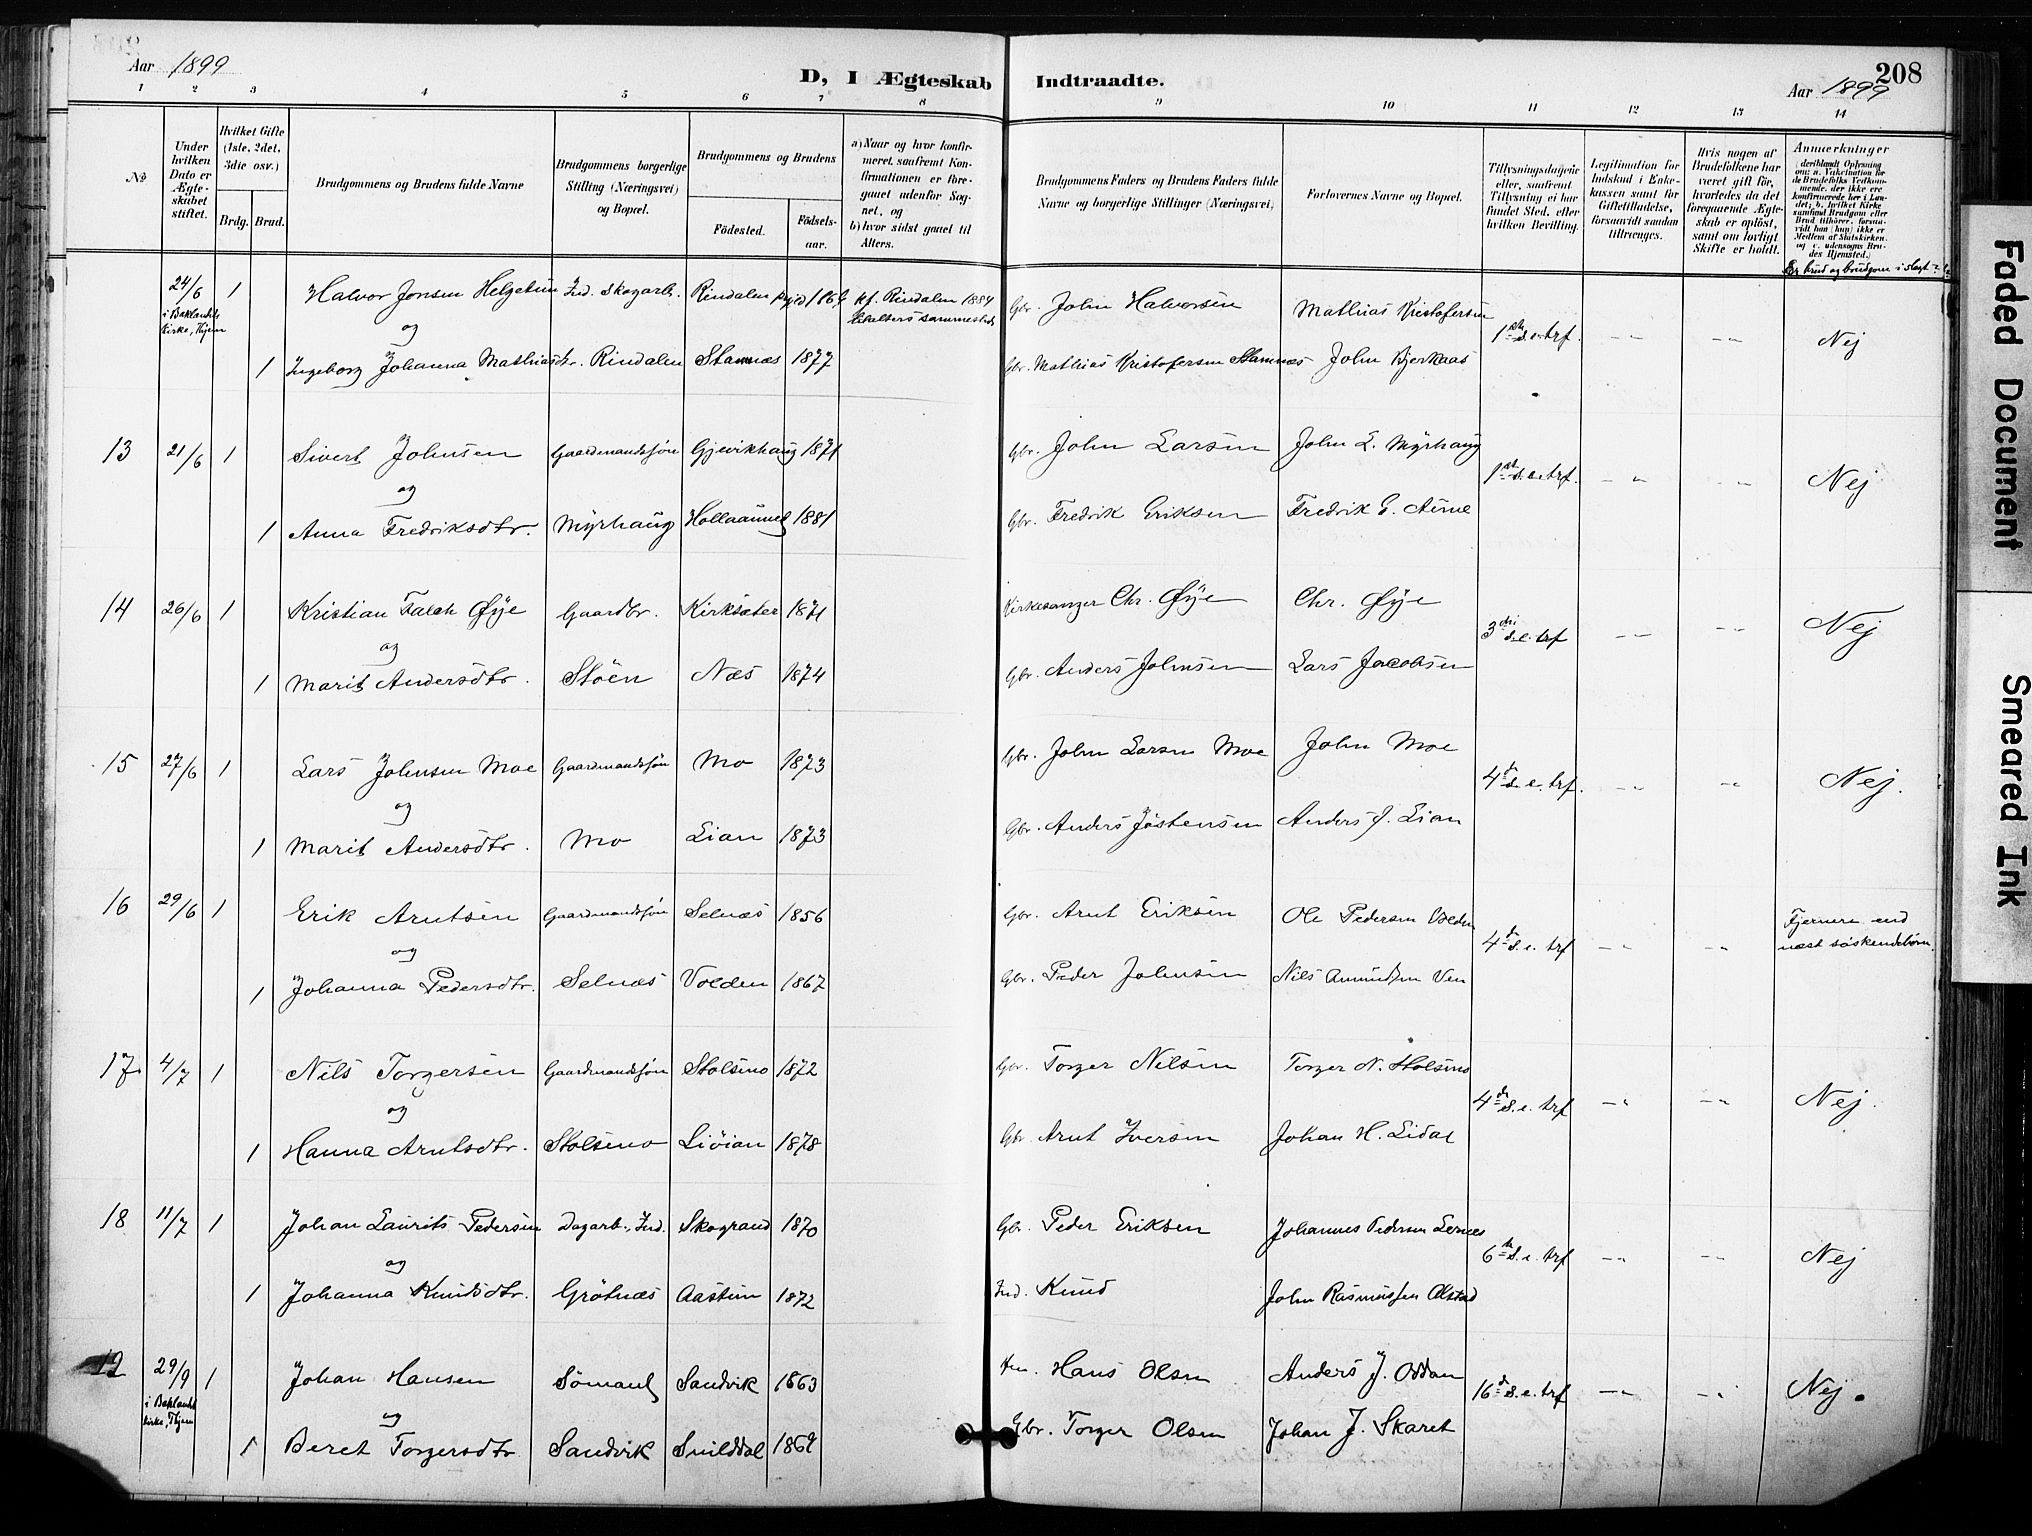 Aar 1899
D, I Ægteskab Indtraadte.
208
Aar 1899
1 2 3 4 5 6 7 8 9 10 11 12 13 14
No
Under hvilken Dato er Ægteskabet stiftet.
Hvilket Gifte (1ste, 2det, 3die osv.)
Brdg. Brud.
Brudgommens og Brudens fulde Navne
Brudgommens borgerlige Stilling (Næringsvei) og Bopæl.
Brudgommens og Brudens
Födested.
Födselsaar.
a) Naar og hvor konfirmeret, saafremt Konfirmationen er foregaaet udenfor Sognet, og
b) hvor sidst gaaet til Alters.
Brudgommens Faders og Brudens Faders fulde Navne og borgerlige Stillinger (Næringsvei)
Forlovernes Navne og Bopæl.
Tillysningsdagene eller, saafremt Tillysning ei har fundet Sted, efter hvilken Bevilling.
Legitimation for Indskud i Enkekassen samt for Giftetilladelse, forsaavidt saadan tiltrænges.
Hvis nogen af Brudefolkene har været gift för, hvorledes da det foregaaende Ægteskab er oplöst, samt om lovligt Skifte er holdt.
Anmærkninger
(deriblandt Oplysning om: a. Vakcination for de Brudefolks Vedkommende, der ikke ere konfirmerede her i Landet; b. hvilket Kirkesamfund Brudgom eller Brud tilhörer, forsaavidt han (hun) ikke er Medlem af Statskirken, og c. udensogns Brudes Hjemsted.)
Er brud og brudgom i slægt?
24/6 1 Halvor Jonsen Helgetun Ind. Skogarb. Rindalen 1864 kf. Rindalen 1884 Gbr. John Halvorsen Mathias Kristofersen
i Baklandets Kirke, Thjem
og
sammesteds
1 s.e. trf. -"- -"- Nej
1 Ingeborg Johanna Mathiasdtr. Rindalen Stamnes 1877 Gbr. Mathias Kristofersen Stamnæs John Bjerkaas
13 21/6 1 Sivert Johnsen Gaardmandssøn Gjevikhaug 1871 Gbr. John Larsen John L. Myrhaug
og
1 s.e. trf. -"- -"- Nej
1 Anna Fredriksdtr. Myrhaug 1881 Gbr. Fredrik Eriksen Fredrik E. Aune
14 26/6 1 Kristian Falch Øye Gaardbr. Kirksæter 1871 Kirkesanger Chr. Øye Chr. Øye
og
3 s.e. trf -"- -"- Nej
1 Marit Andersdtr. Støen Næs 1874 Gbr. Anders Johnsen Lars Jacobsen
15 27/6 1 Lars Johnsen Moe Gaardmandssøn Mo 1873 Gbr. John Larsen Moe John Moe
og
4 s.e. trf. -"- -"- Nej.
1 Marit Andersdtr. Mo Lian 1873 Gbr. Anders Jostensen Anders J. Lian
16 29/6 1 Erik Arntsen Gaardmandssøn Selnæs 1856 Gbr. Arnt Eriksen Ole Pedersen Volden
og
4 s.e. trf -"- -"- Fjernere end næst söskendebörn.
1 Johanna Pedersdtr. Selnæs Volden 1867 Gbr. Peder Johnsen Nils Amundsen Ven
17 4/7 1 Nils Torgersen Gaardmandssøn Stolsmo 1872 Gbr. Torger Nilsen Torger N. Stolsmo
og
4 s.e. trf -"- -"- Nej.
1 Hanna Arntsdtr. Stolsmo Liöian 1878 Gbr. Arnt Iversen Johan H. Lidal
18 11/7 1 Johan Laurits Pedersen Dagarb., Ind. Skogrand 1870 Gbr. Peder Eriksen Johannes Pedersen Lernes
og
6 s.e. trf -"- -"- Nej
1 Johanna Knudsdtr. Grötnæs Aastun 1872 Ind. Knud John Rasmussen Olstad
19 29/9 1 Johan Hansen Sömand Sandvik 1863 Hans Olsen Anders J. Oddan
i Baklandets Kirke, Thjem
og
16 s.e. trf -"- -"- Nej.
1 Beret Torgersdtr. Sandvik Snilddal 1869 Gbr. Torger Olsen Johan J. Skaret
Faded Document
Smeared Ink